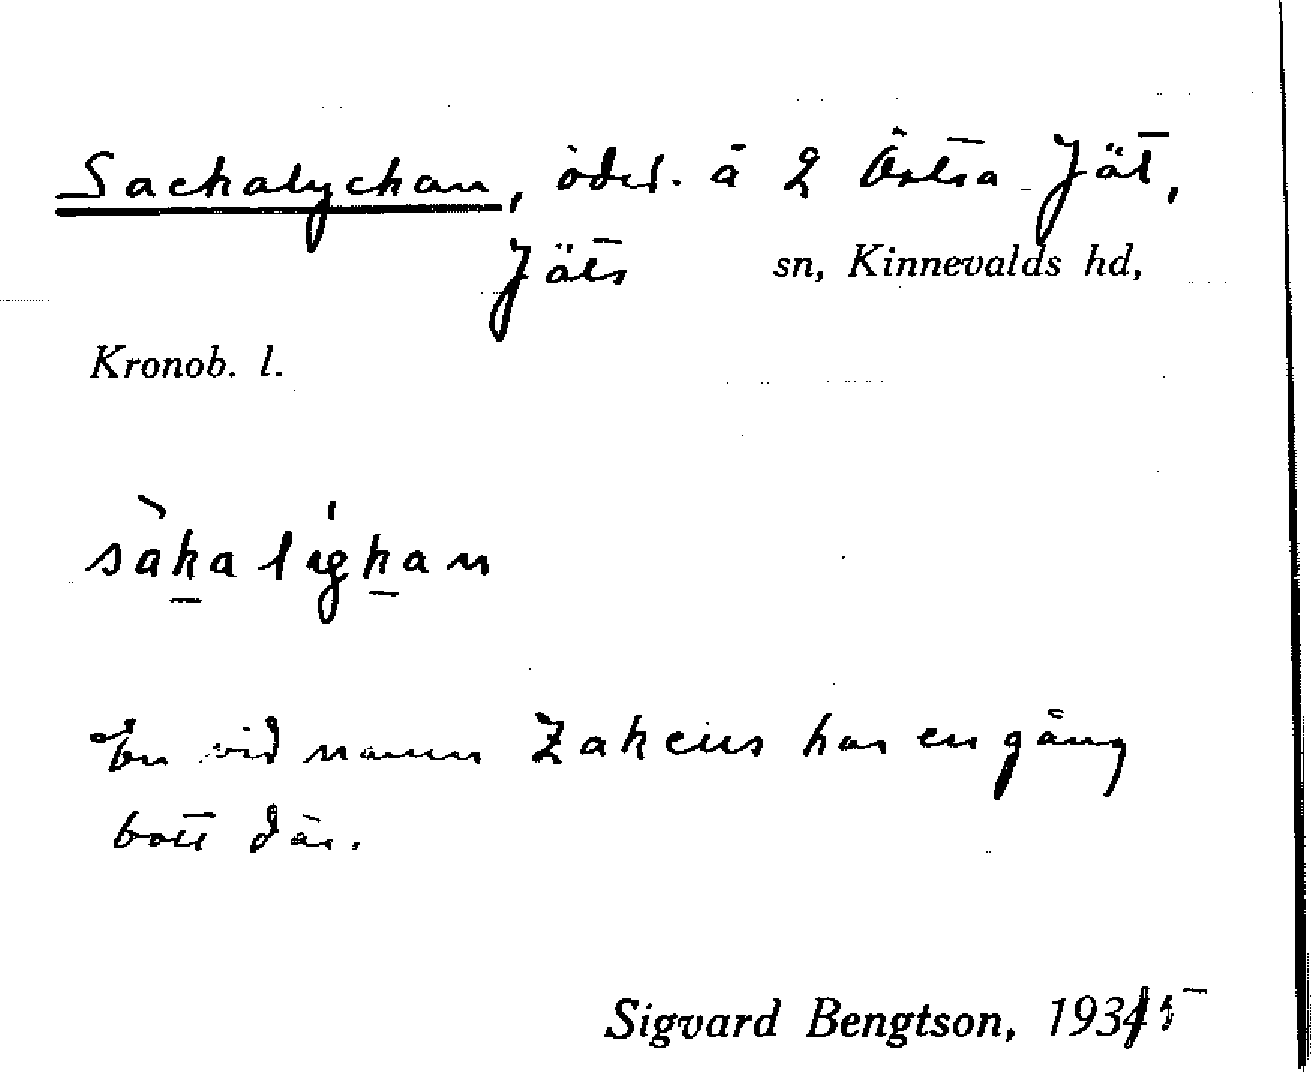 Sackalyckan, ödel. å 2 Östra Jät,
Jäts sn, Kinnevalds hd,
Kronob. l.
sàkalıgkan
En vid namn Zakeus har en gång
bott där.
Sigvard Bengtson, 1935